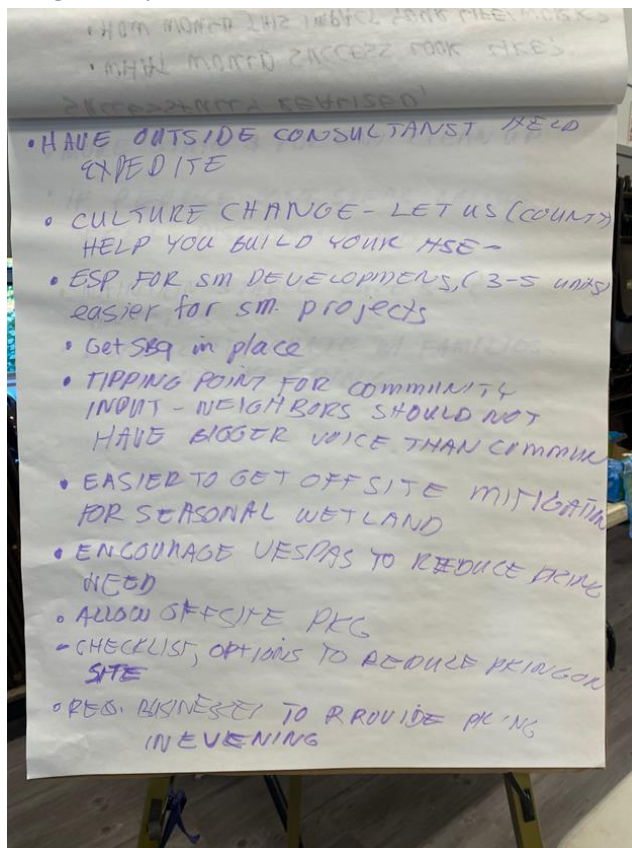 • HAVE OUTSIDE CONSULTANST HELD
EXPEDITE
• CULTURE CHANGE - LET US (COUNTY)
HELP YOU BUILD YOUR HSE -
• ESP FOR SM DEVELOPMENS, (3-5 units)
easier for sm. projects
• Get SB9 in place
• TIPPING POINT FOR COMMUNITY
INPUT - NEIGHBORS SHOULD NOT
HAVE BIGGER VOICE THAN COMMUN
• EASIER TO GET OFFSITE MITIGATION
FOR SEASONAL WETLAND
• ENCOURAGE VESPAS TO REDUCE PKING
NEED
• ALLOW OFFSITE PKG
- CHECKLIST, OPTIONS TO REDUCE PKING ON
SITE
• REQ. BUSINESSES TO PROVIDE PKING
IN EVENING